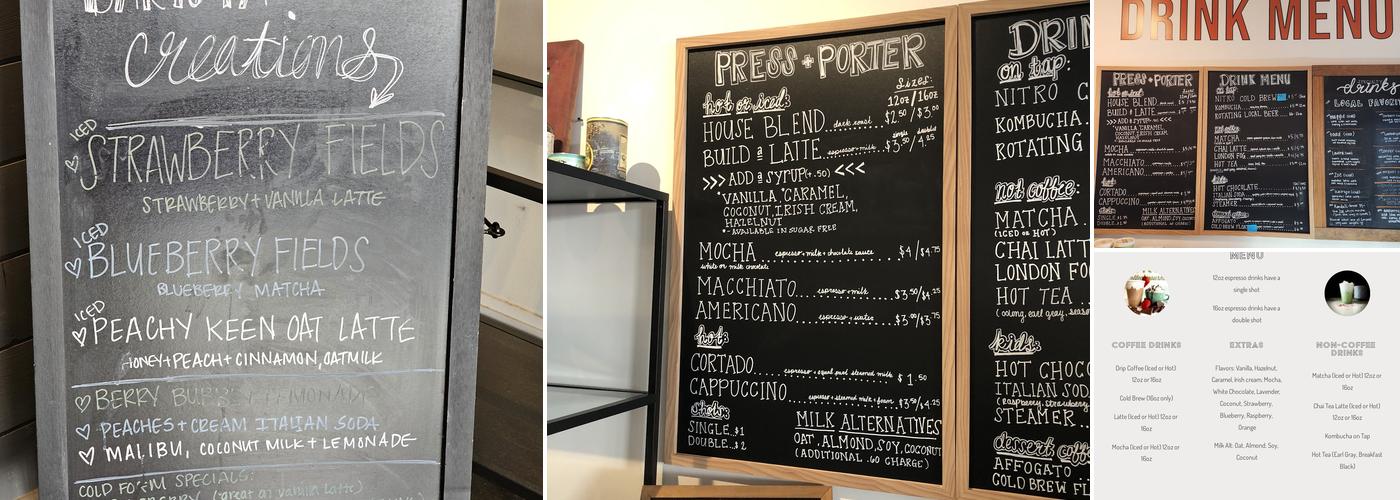 creations
ICED
STRAWBERRY FIELDS
STRAWBERRY + VANILLA LATTE
ICED
BLUEBERRY FIELDS
BLUEBERRY MATCHA
ICED
PEACHY KEEN OAT LATTE
HONEY + PEACH + CINNAMON, OATMILK
BERRY BURST LEMONADE
PEACHES + CREAM ITALIAN SODA
MALIBU, COCONUT MILK + LEMONADE
COLD FOAM SPECIALS:
(great on vanilla latte)
PRESS + PORTER
Sizes:
hot or iced:
12oz / 16oz
HOUSE BLEND... dark roast ... $2.50 / $3.00
single double
BUILD a LATTE... espresso + milk ... $3.50 / 4.25
>>> ADD a SYRUP (+.50) <<<
*VANILLA, *CARAMEL,
COCONUT, IRISH CREAM,
HAZELNUT
*- AVAILABLE IN SUGAR FREE
MOCHA espresso + milk + chocolate sauce $4 / $4.75
white or milk chocolate
MACCHIATO... espresso + milk ... $3.50 / $4.25
AMERICANO... espresso + water ... $3.00 / $3.75
hot:
CORTADO espresso + equal part steamed milk $1.50
CAPPUCCINO espresso + steamed milk + foam $3.50 / 4.25
shots:
SINGLE..$1
DOUBLE...$2
MILK ALTERNATIVES
OAT, ALMOND, SOY, COCONUT
(ADDITIONAL .60 CHARGE)
DRIN
on tap:
NITRO C
KOMBUCHA.
ROTATING
not coffee:
MATCHA
(ICED or HOT)
CHAI LATT
LONDON FO
HOT TEA
kids:
HOT CHOC
ITALIAN SODA
(raspberry, strawberry
STEAMER
dessert coff
AFFOGATO
COLD BREW FL
DRINK MENU
PRESS + PORTER
hot or iced:
HOUSE BLEND
BUILD a LATTE
>>> ADD a SYRUP <<<
VANILLA, CARAMEL,
COCONUT, IRISH CREAM,
HAZELNUT
MOCHA
MACCHIATO
AMERICANO
hot:
CORTADO
CAPPUCCINO
MILK ALTERNATIVES
DRINK MENU
on tap:
NITRO COLD BREW
KOMBUCHA
ROTATING LOCAL BEER
not coffee:
MATCHA
CHAI LATTE
LONDON FOG
HOT TEA
kids:
HOT CHOCOLATE
ITALIAN SODA
STEAMER
dessert coffee
AFFOGATO
COLD BREW FLOAT
drinks
LOCAL FAVORI
MENU
12oz espresso drinks have a
single shot
16oz espresso drinks have a
double shot
COFFEE DRINKS
Drip Coffee (Iced or Hot)
12oz or 16oz
Cold Brew (16oz only)
Latte (Iced or Hot) 12oz or
16oz
Mocha (Iced or Hot) 12oz or
16oz
EXTRAS
Flavors: Vanilla, Hazelnut,
Caramel, Irish cream, Mocha,
White Chocolate, Lavender,
Coconut, Strawberry,
Blueberry, Raspberry,
Orange
Milk Alt: Oat, Almond, Soy,
Coconut
NON-COFFEE
DRINKS
Matcha (Iced or Hot) 12oz or
16oz
Chai Tea Latte (Iced or Hot)
12oz or 16oz
Kombucha on Tap
Hot Tea (Earl Gray, Breakfast
Black)